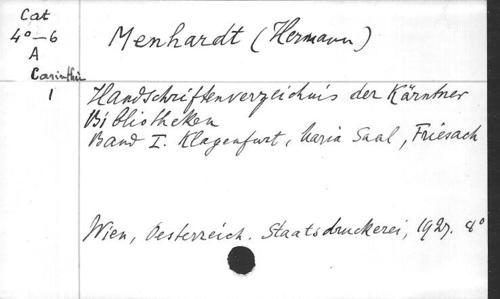 Cat
4°-6
A
Carinthie
1
Menhardt (Hermann)
Handschriftenverzeichnis der Kärntner
Bibliotheken
Band I. Klagenfurt, Maria Saal, Friesach
Wien, Oesterreich. Staatsdruckerei, 1927. 8°